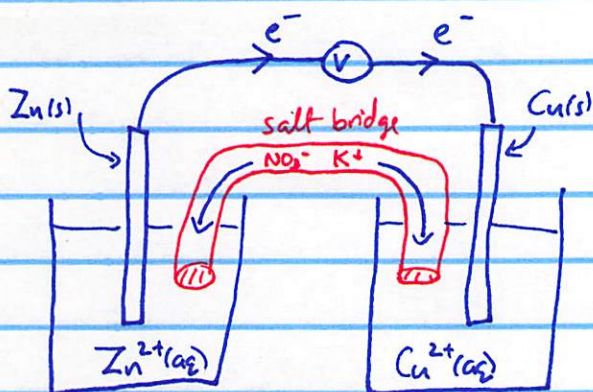 e⁻ e⁻
V
Zn(s) Cu(s)
salt bridge
NO₃⁻ K⁺
Zn²⁺(aq) Cu²⁺(aq)